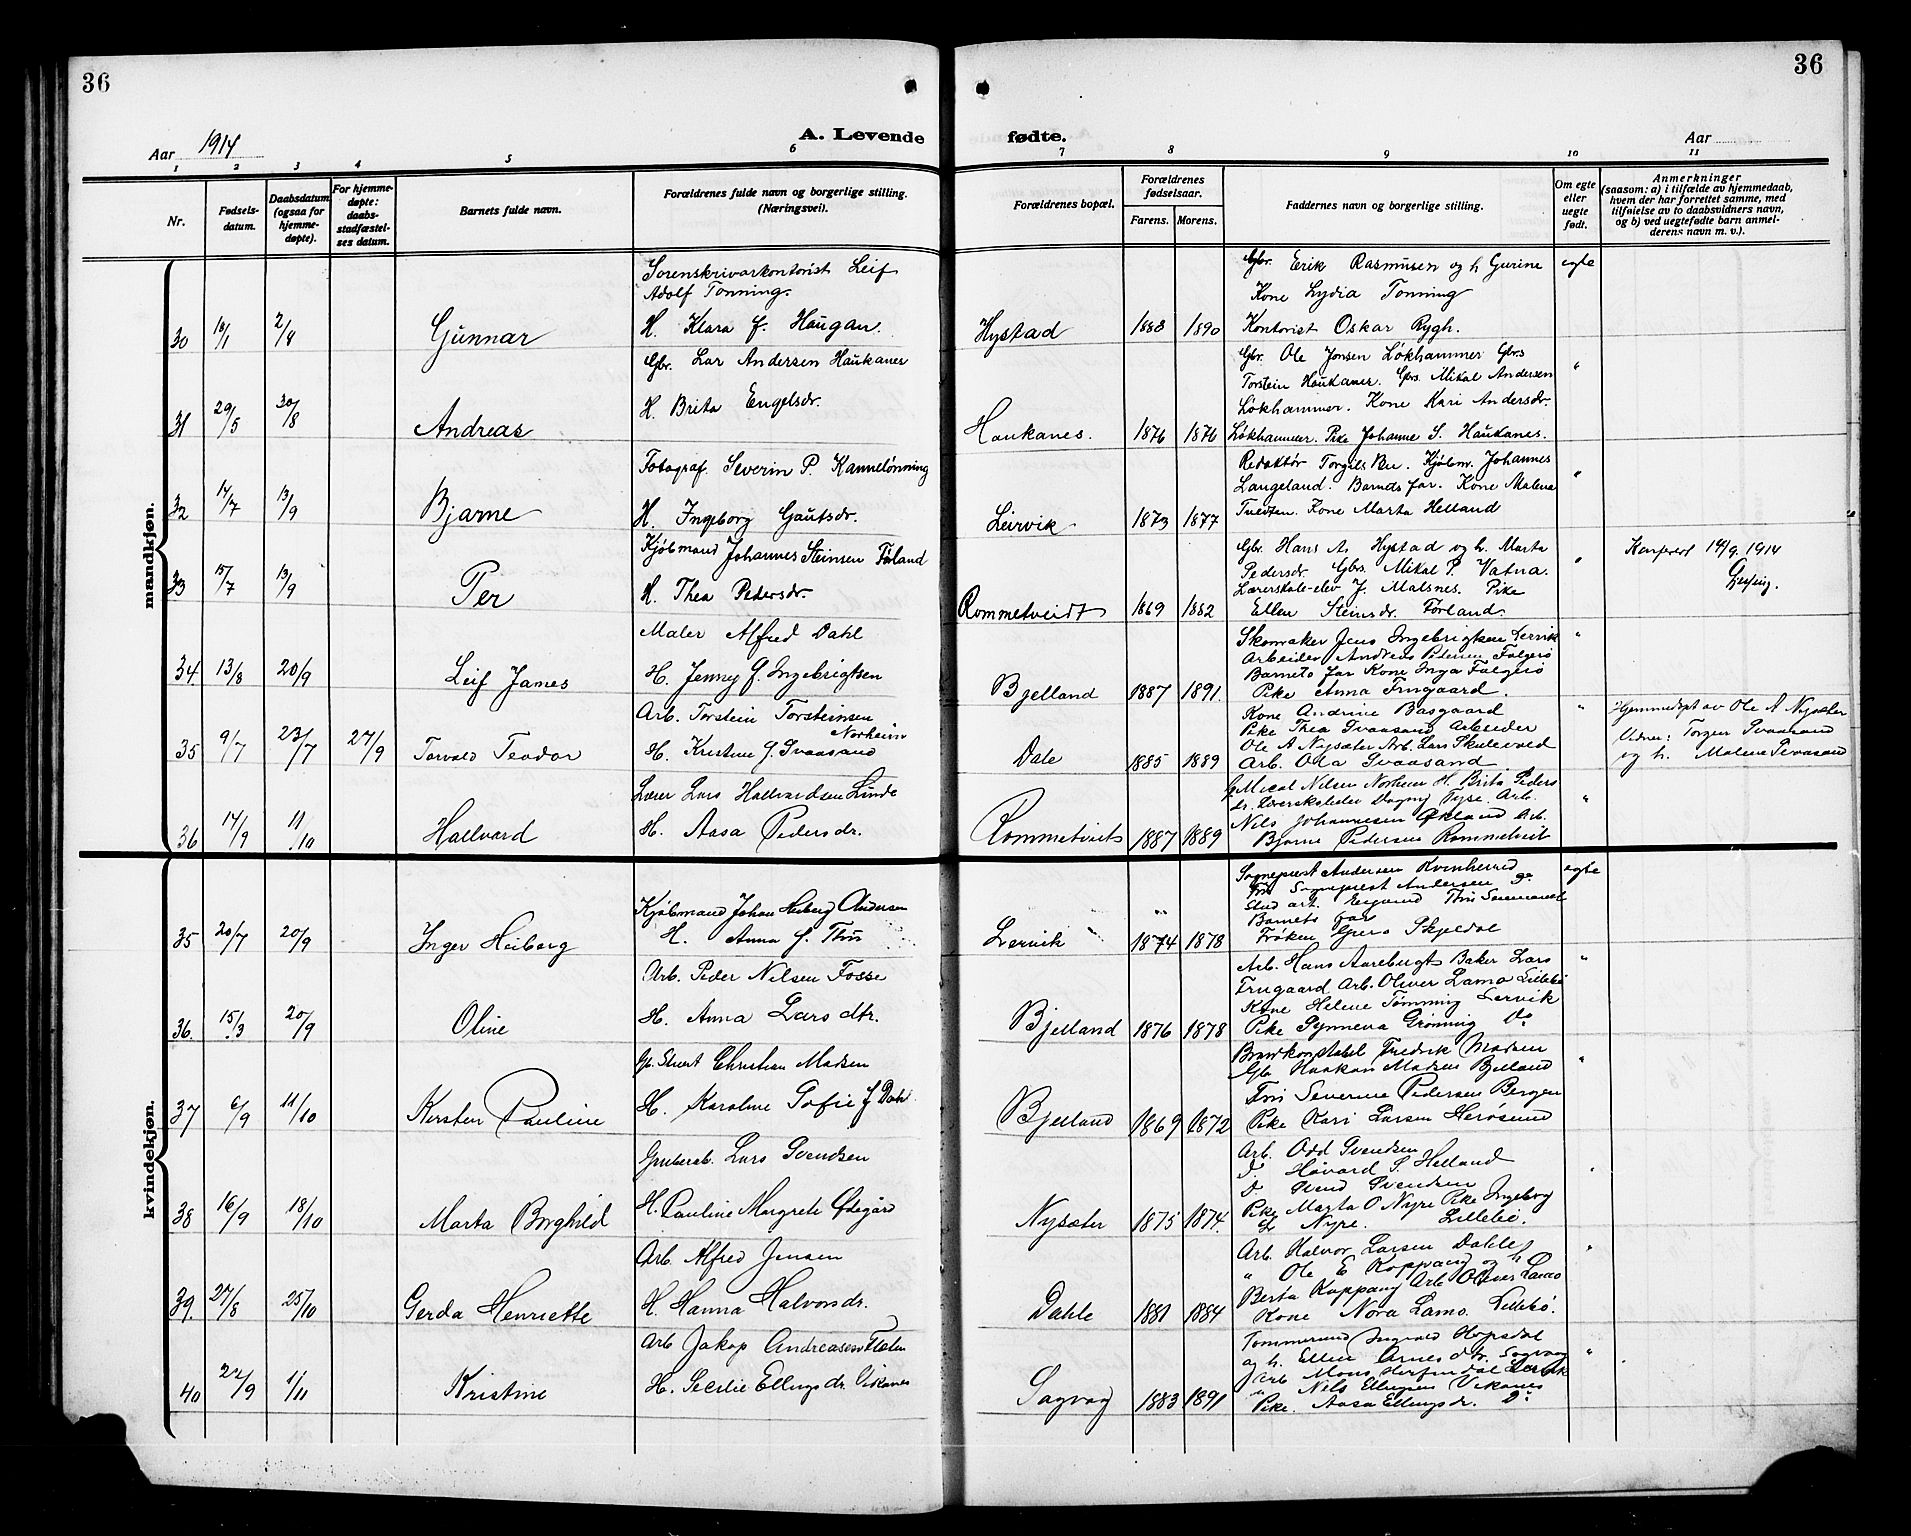 36
36
Aar 1914
A. Levende
fødte.
Aar
1 2 3 4 5 6 7 8 9 10 11
Nr.
Fødsels-
datum.
Daabsdatum
(ogsaa for
hjemme-
døpte).
For hjemme-
døpte:
daabs-
stadfæstel-
ses datum.
Barnets fulde navn.
Forældrenes fulde navn og borgerlige stilling.
(Næringsvei).
Forældrenes bopæl.
Forældrenes
fødselsaar.
Farens. Morens.
Faddernes navn og borgerlige stilling.
Om egte
eller
uegte
født.
Anmerkninger
(saasom: a) i tilfælde av hjemmedaab,
hvem der har forrettet samme, med
tilføielse av to daabsvidners navn,
og b) ved uegtefødte barn anmel-
derens navn m. v.).
mandkjøn.
Sorenskrivarkontorist Leif
Adolf Tonning.
30 10/1 2/8 Gunnar H. Klara f. Haugan. Hystad 1888 1890
Gbr. Erik Rasmusen og h Gurine
Kone Lydia Tonning
Kontorist Oskar Rygh.
egte
Gbr. Lar Andersen Haukanes
31 29/5 30/8 Andreas H. Brita Engelsdr. Haukanes. 1876 1876
Gbr. Ole Jonsen Løkhammer Gbrs
Torstein Haukanes. Gbrs. Mikal Andersen
Løkhammer. Kone Kari Andersdr.
Løkhammer. Pike Johanne S. Haukanes.
"
Fotograf. Severin P. Kannelønning
32 14/7 13/9 Bjarne H. Ingeborg Gautsdr. Leirvik 1873 1877
Redaktør Torgils Bu. Kjøbm. Johannes
Langeland. Barnets far. Kone Malena
Tvedten. Kone Marta Helland
"
Kjøbmand Johannes Steinsen Førland
33 15/7 13/9 Per H. Thea Pedersdr. Rommetveidt 1869 1882
Gbr. Hans A. Hystad og h. Marta
Pedersdr. Gbrs. Mikal P. Vatna.
Lærerskole-elev J. Matsnes. Pike
Ellen Steinsdr. Førland.
"
Konferert 14/9. 1914
Maler Alfred Dahl
34 13/8 20/9 Leif James H. Jenny f. Ingebrigtsen Bjelland 1887 1891.
Skomaker Jens Ingebrigtsen Lervik
Arbeider Andreas Pedersen Falgerø
Barnets far Kone Inga Falgerø
Pike Anna Frugaard.
"
Arb. Torstein Torsteinsen
Norheim
35 9/7 23/7 27/9 Torvald Teodor H. Kristine f. Svaasand Dale 1885 1889
Kone Andrine Basgaard
Pike Thea Svaasand Arbeider
Ole A Nysæter Arb. Lars Skulevold
Arb. Ola Svaasand
"
Hjemmedøpt av Ole A Nysæter
Vidner: Torger Svaasand
og h. Malene Svaasand
Lærer Lars Hallvardsen Linde
36 14/9 11/10 Hallvard H. Aasa Pedersdr. Rommetveit 1887 1889
Micael Nilsen Norheim H. Brita Peders
dr. Lærerskoleelev Dagny Tyse. Arb.
Nils Johannesen Økland Arb.
Bjarne Pedersen Rommetveit
"
kvindekjøn.
Kjøbmand Johan Heiberg Andersen
35 20/7 20/9 Inger Heiberg H. Anna f. Thiis Lervik 1874 1878
Sogneprest Andersen Kvinherred
Fru Sogneprest Andersen Do
Stud art. Eyvind Thiis
Barnets far
Frøken Skjeldal
egte
Arb. Peder Nilsen Fosse
36. 15/3 20/9 Oline H. Anna Larsdtr. Bjelland 1876 1878
Arb. Hans Aarebergt Baker Lars
Frugaard Arb. Oliver Lamo Lillebø
Kone Helene Tømming Lervik
Pike Synneva Grønning Do
"
Christian Madsen
37 6/9 11/10 Kersten Pauline H. Karoline Sofie f Dahl Bjelland 1869 1872
Brandkonstabel Fredrik Madsen
Gb Haakon Madsen Bjelland
Fru Severine Pedersen Bergen
Pike Kari Larsen Herøsund
"
Grubearb. Lars Svendsen
38 16/9 18/10 Marta Borghild H. Pauline Margrete Ødegård Nysæter 1875 1874.
Arb. Odd Svendsen
D. Håvard S. Helland
D. Svend Svendsen
Pike Marta O Nyre Pike Ingeborg
Nyre. Lillebø.
"
Arb. Alfred Jensen
39. 27/8 25/10 Gerda Henriette H. Hanna Halvorsdr. Dahle 1881 1884
Arb. Halvor Larsen Dahle
" Ole E Koppang og h
Berta Koppang Arb Oliver Lamo
Kone Nora Lamo. Lillebø.
"
Arb Jakop Andreasen Flaten
40 22/9 1/11 Kristine H. Secilie Ellingsdr. Vikanes Sagvag 1883 1891
Tømmermand Ingvald Hopsdal
og h. Ellen Arnesdtr. Sagvaag
Arb Mons Herfindal Lervik
" Nils Ellingsen Vikanes
Pike. Aasa Ellingsdr. Do
"